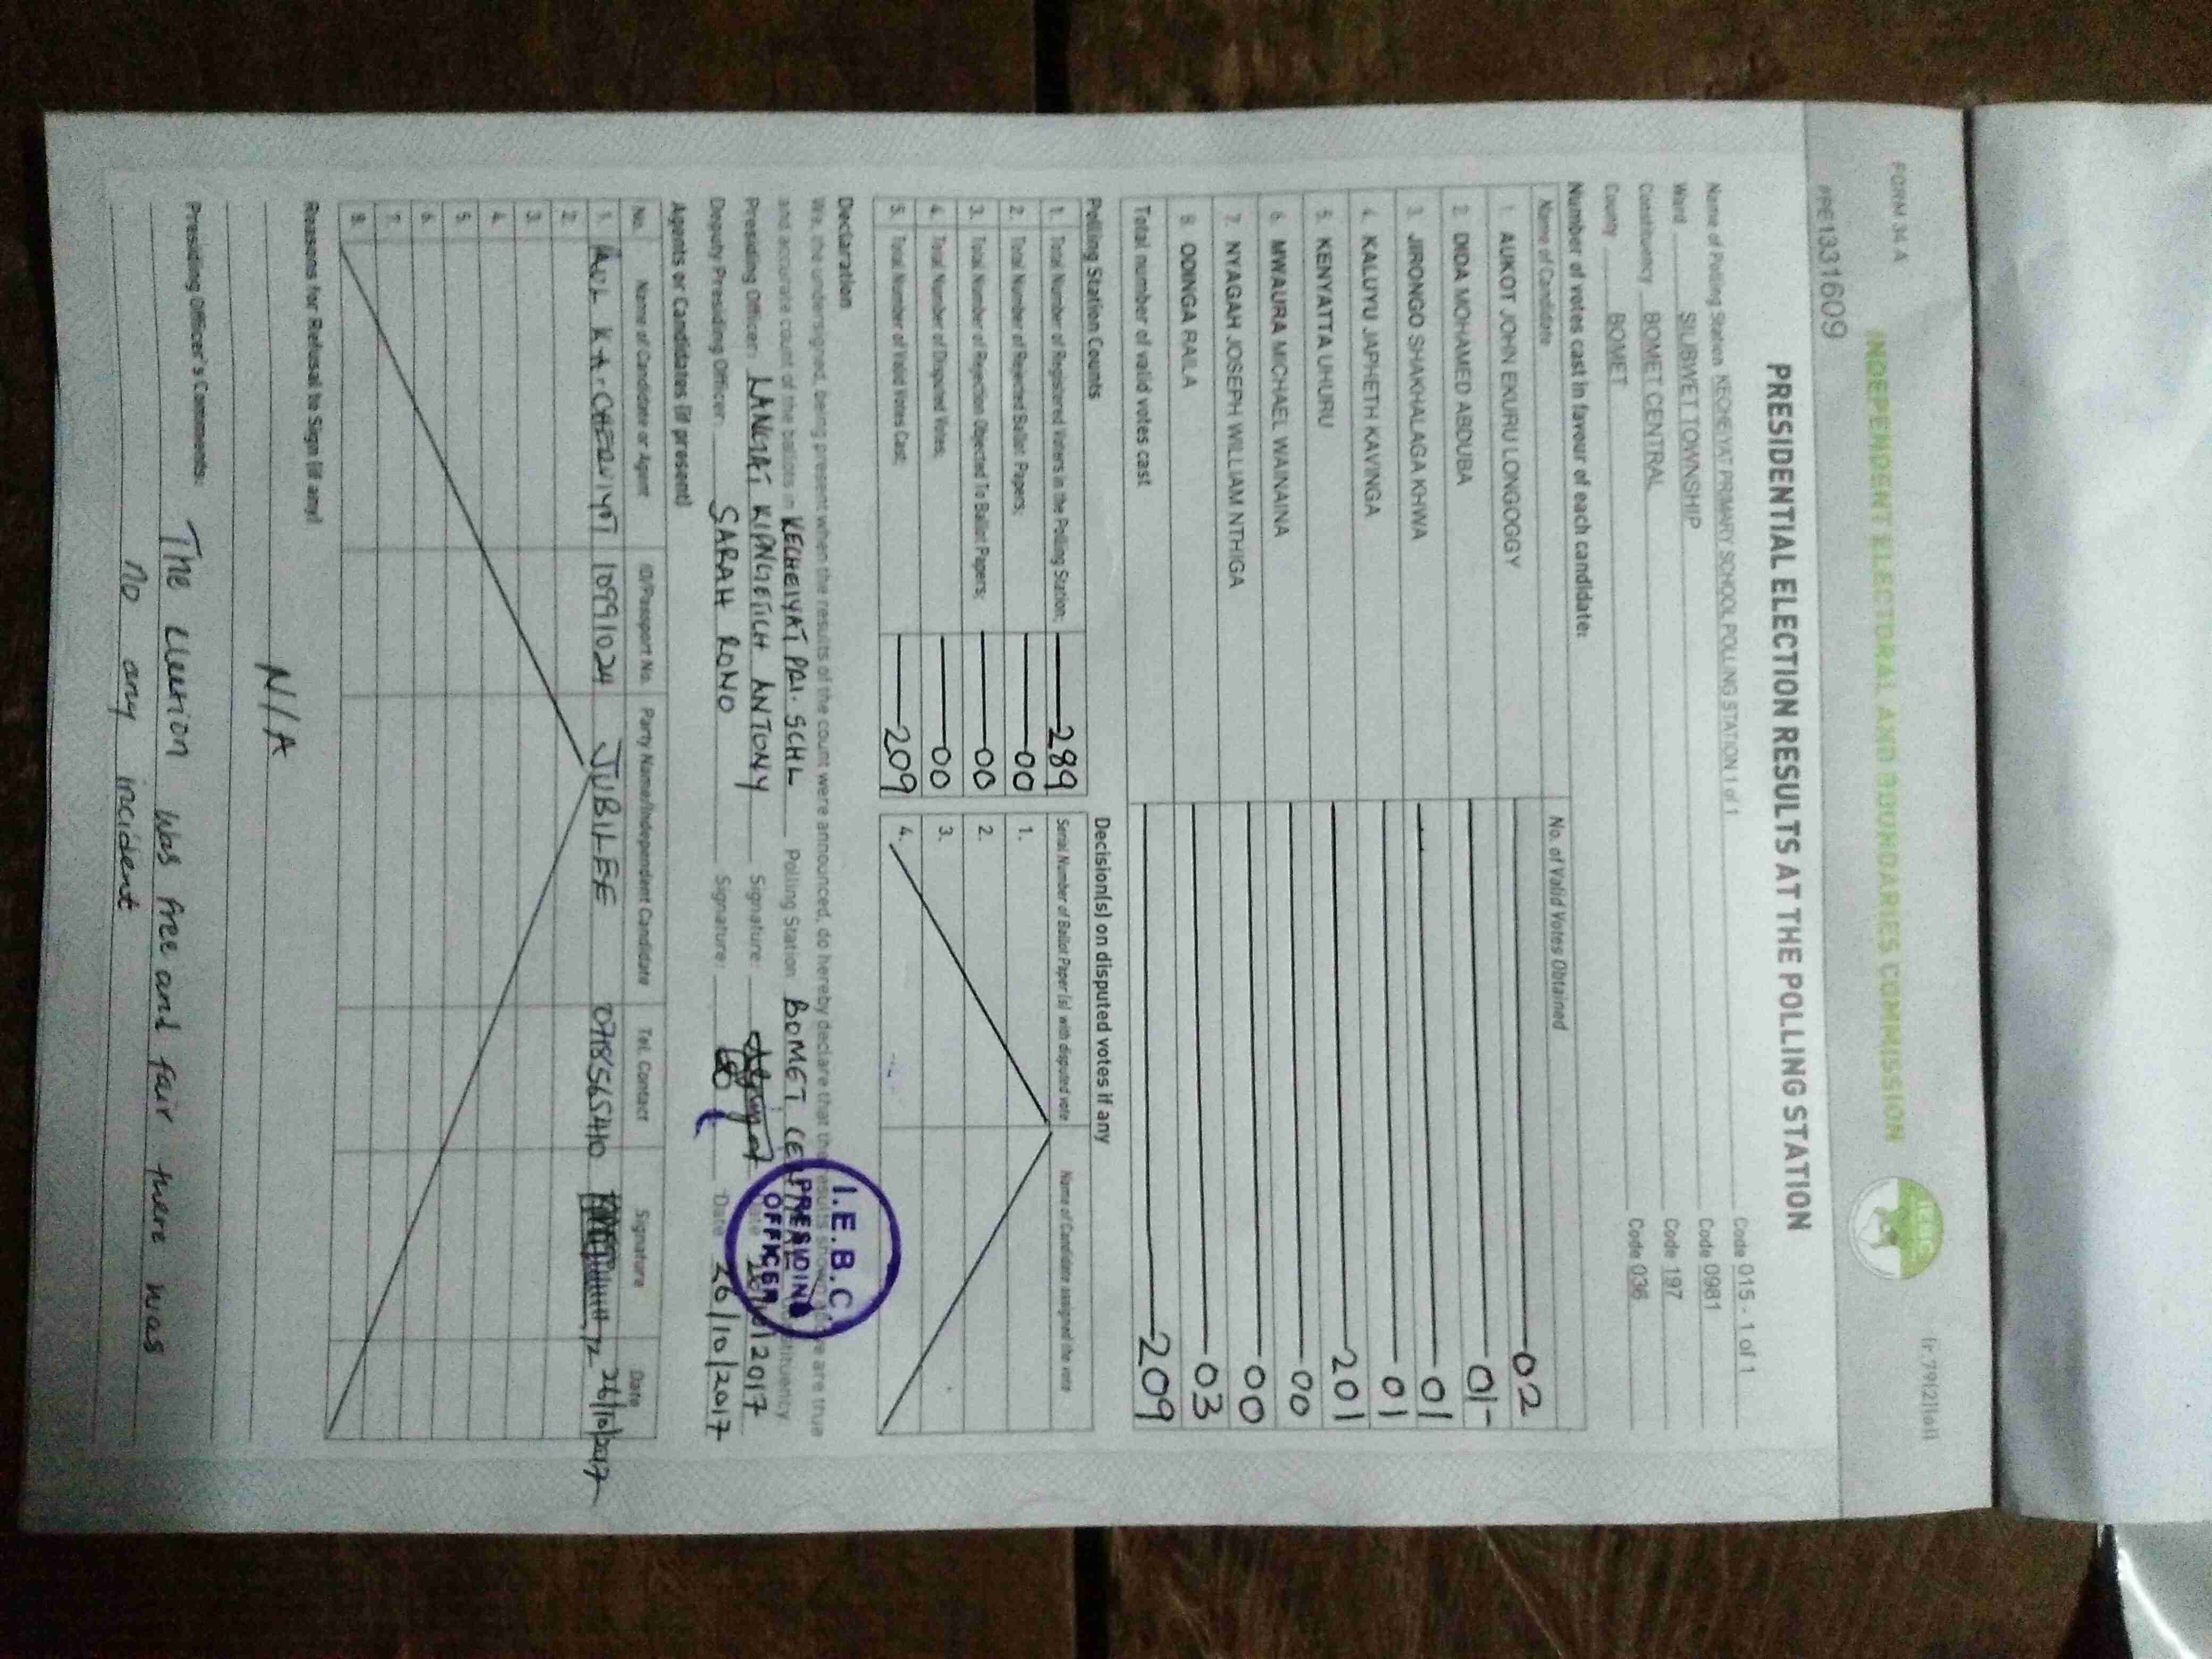 FORM 34 A
INDEPENDENT ELECTORAL AND BOUNDARIES COMMISSION
IEBC
PRE1331609
PRESIDENTIAL ELECTION RESULTS AT THE POLLING STATION
Name of Polling Station KECHEIYAT PRIMARY SCHOOL POLLING STATION 1 of 1 Code 015 - 1 of 1
Ward SILIBWET TOWNSHIP Code 0981
Constituency BOMET CENTRAL Code 197
County BOMET Code 036
Number of votes cast in favour of each candidate:
Name of Candidate No. of Valid Votes Obtained
1. AUKOT JOHN EKURU LONGOGGY 02
2. DIDA MOHAMED ABDUBA 01-
3. JIRONGO SHAKHALAGA KHWA 01
4. KALUYU JAPHETH KAVINGA 01
5. KENYATTA UHURU 201
6. MWAURA MICHAEL WAINAINA 00
7. NYAGAH JOSEPH WILLIAM NTHIGA 00
8. ODINGA RAILA 03
Total number of valid votes cast 209
Polling Station Counts
1. Total Number of Registered Voters in the Polling Station; 289
2. Total Number of Rejected Ballot Papers; 00
3. Total Number of Rejection Objected To Ballot Papers; 00
4. Total Number of Disputed Votes; 00
5. Total Number of Valid Votes Cast; 209
Decision(s) on disputed votes if any
Serial Number of Ballot Paper(s) with disputed vote Name of Candidate assigned the vote
1.
2.
3.
4.
Declaration
We, the undersigned, being present when the results of the count were announced, do hereby declare that the results shown above are true
and accurate count of the ballots in KECHEIYAT PRI. SCHL Polling Station BOMET CENTRAL Constituency
Presiding Officer: LANGAT KIPNGETICH ANTONY Signature: Date 26/10/2017
Deputy Presiding Officer: SARAH RONO Signature: Date 26/10/2017
I.E.B.C
PRESIDING
OFFICER
Agents or Candidates (if present)
No. Name of Candidate or Agent ID/Passport No. Party Name/Independent Candidate Tel. Contact Signature Date
1. 10991024 JUBILEE 0718565410 26/10/2017
2.
3.
4.
5.
6.
7.
8.
Reasons for Refusal to Sign (if any)
N/A
Presiding Officer's Comments: The election was free and fair there was
no any incident